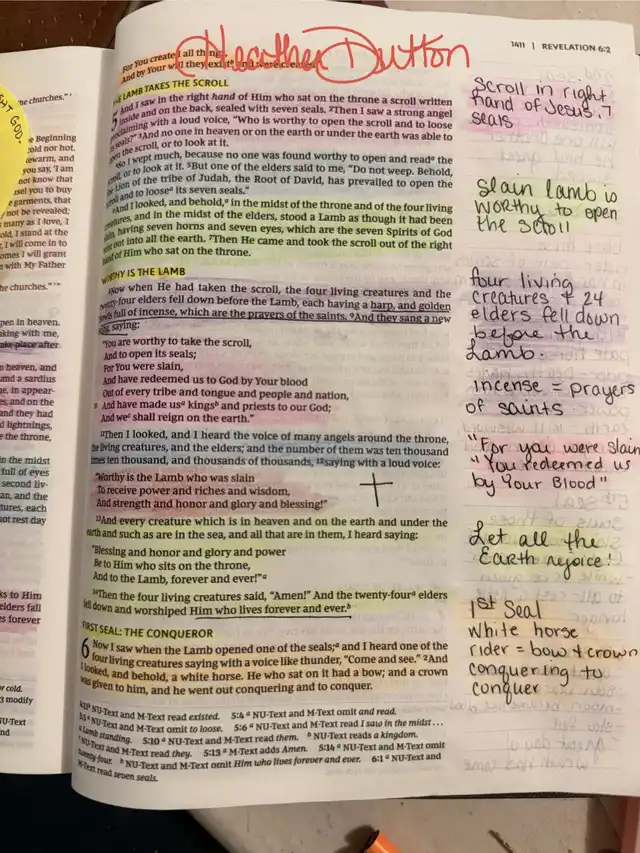 Heather Dutton
1411 | REVELATION 6:2
For You created all things,
And by Your will they exist and were created."
THE LAMB TAKES THE SCROLL
And I saw in the right hand of Him who sat on the throne a scroll written
inside and on the back, sealed with seven seals. 2Then I saw a strong angel
proclaiming with a loud voice, "Who is worthy to open the scroll and to loose
its seals?" 3And no one in heaven or on the earth or under the earth was able to
open the scroll, or to look at it.
So I wept much, because no one was found worthy to open and reada the
scroll, or to look at it. 5But one of the elders said to me, "Do not weep. Behold,
the Lion of the tribe of Judah, the Root of David, has prevailed to open the
scroll and to loosea its seven seals."
And I looked, and behold,a in the midst of the throne and of the four living
creatures, and in the midst of the elders, stood a Lamb as though it had been
slain, having seven horns and seven eyes, which are the seven Spirits of God
sent out into all the earth. 7Then He came and took the scroll out of the right
hand of Him who sat on the throne.
WORTHY IS THE LAMB
Now when He had taken the scroll, the four living creatures and the
twenty-four elders fell down before the Lamb, each having a harp, and golden
bowls full of incense, which are the prayers of the saints. 9And they sang a new
song, saying:
"You are worthy to take the scroll,
And to open its seals;
For You were slain,
And have redeemed us to God by Your blood
Out of every tribe and tongue and people and nation,
And have made usa kingsb and priests to our God;
And wec shall reign on the earth."
11Then I looked, and I heard the voice of many angels around the throne,
the living creatures, and the elders; and the number of them was ten thousand
times ten thousand, and thousands of thousands, 12saying with a loud voice:
"Worthy is the Lamb who was slain
To receive power and riches and wisdom,
And strength and honor and glory and blessing!"
13And every creature which is in heaven and on the earth and under the
earth and such as are in the sea, and all that are in them, I heard saying:
"Blessing and honor and glory and power
Be to Him who sits on the throne,
And to the Lamb, forever and ever!"a
14Then the four living creatures said, "Amen!" And the twenty-foura elders
fell down and worshiped Him who lives forever and ever.b
FIRST SEAL: THE CONQUEROR
6 Now I saw when the Lamb opened one of the seals;a and I heard one of the
four living creatures saying with a voice like thunder, "Come and see." 2And
I looked, and behold, a white horse. He who sat on it had a bow; and a crown
was given to him, and he went out conquering and to conquer.
NU-Text and M-Text read existed. 5:4 a NU-Text and M-Text omit and read.
5:5 a NU-Text and M-Text omit to loose. 5:6 a NU-Text and M-Text read I saw in the midst . . .
a Lamb standing. 5:10 a NU-Text and M-Text read them. b NU-Text reads a kingdom.
c NU-Text and M-Text read they. 5:13 a M-Text adds Amen. 5:14 a NU-Text and M-Text omit
twenty-four. b NU-Text and M-Text omit Him who lives forever and ever. 6:1 a NU-Text and
M-Text read seven seals.
Scroll in right
hand of Jesus. 7
seals
Slain lamb is
worthy to open
the scroll
four living
creatures + 24
elders fell down
before the
Lamb.
incense = prayers
of saints
"For you were slain
"You redeemed us
by Your Blood"
Let all the
Earth rejoice!
1st Seal
White horse
rider = bow + crown
conquering to
conquer
GHT GOD.
he churches."'
e Beginning
old nor hot.
ewarm, and
you say, 'I am
not know that
sel you to buy
garments, that
not be revealed;
many as I love, I
old, I stand at the
r, I will come in to
omes I will grant
n with My Father
he churches."'"
pen in heaven.
aking with me,
take place after
n heaven, and
and a sardius
ge, in appear-
es, and on the
and they had
d lightnings,
e the throne,
in the midst
full of eyes
second liv-
an, and the
tures, each
not rest day
ks to Him
elders fall
es forever
or cold.
3 modify
NU-Text
nd